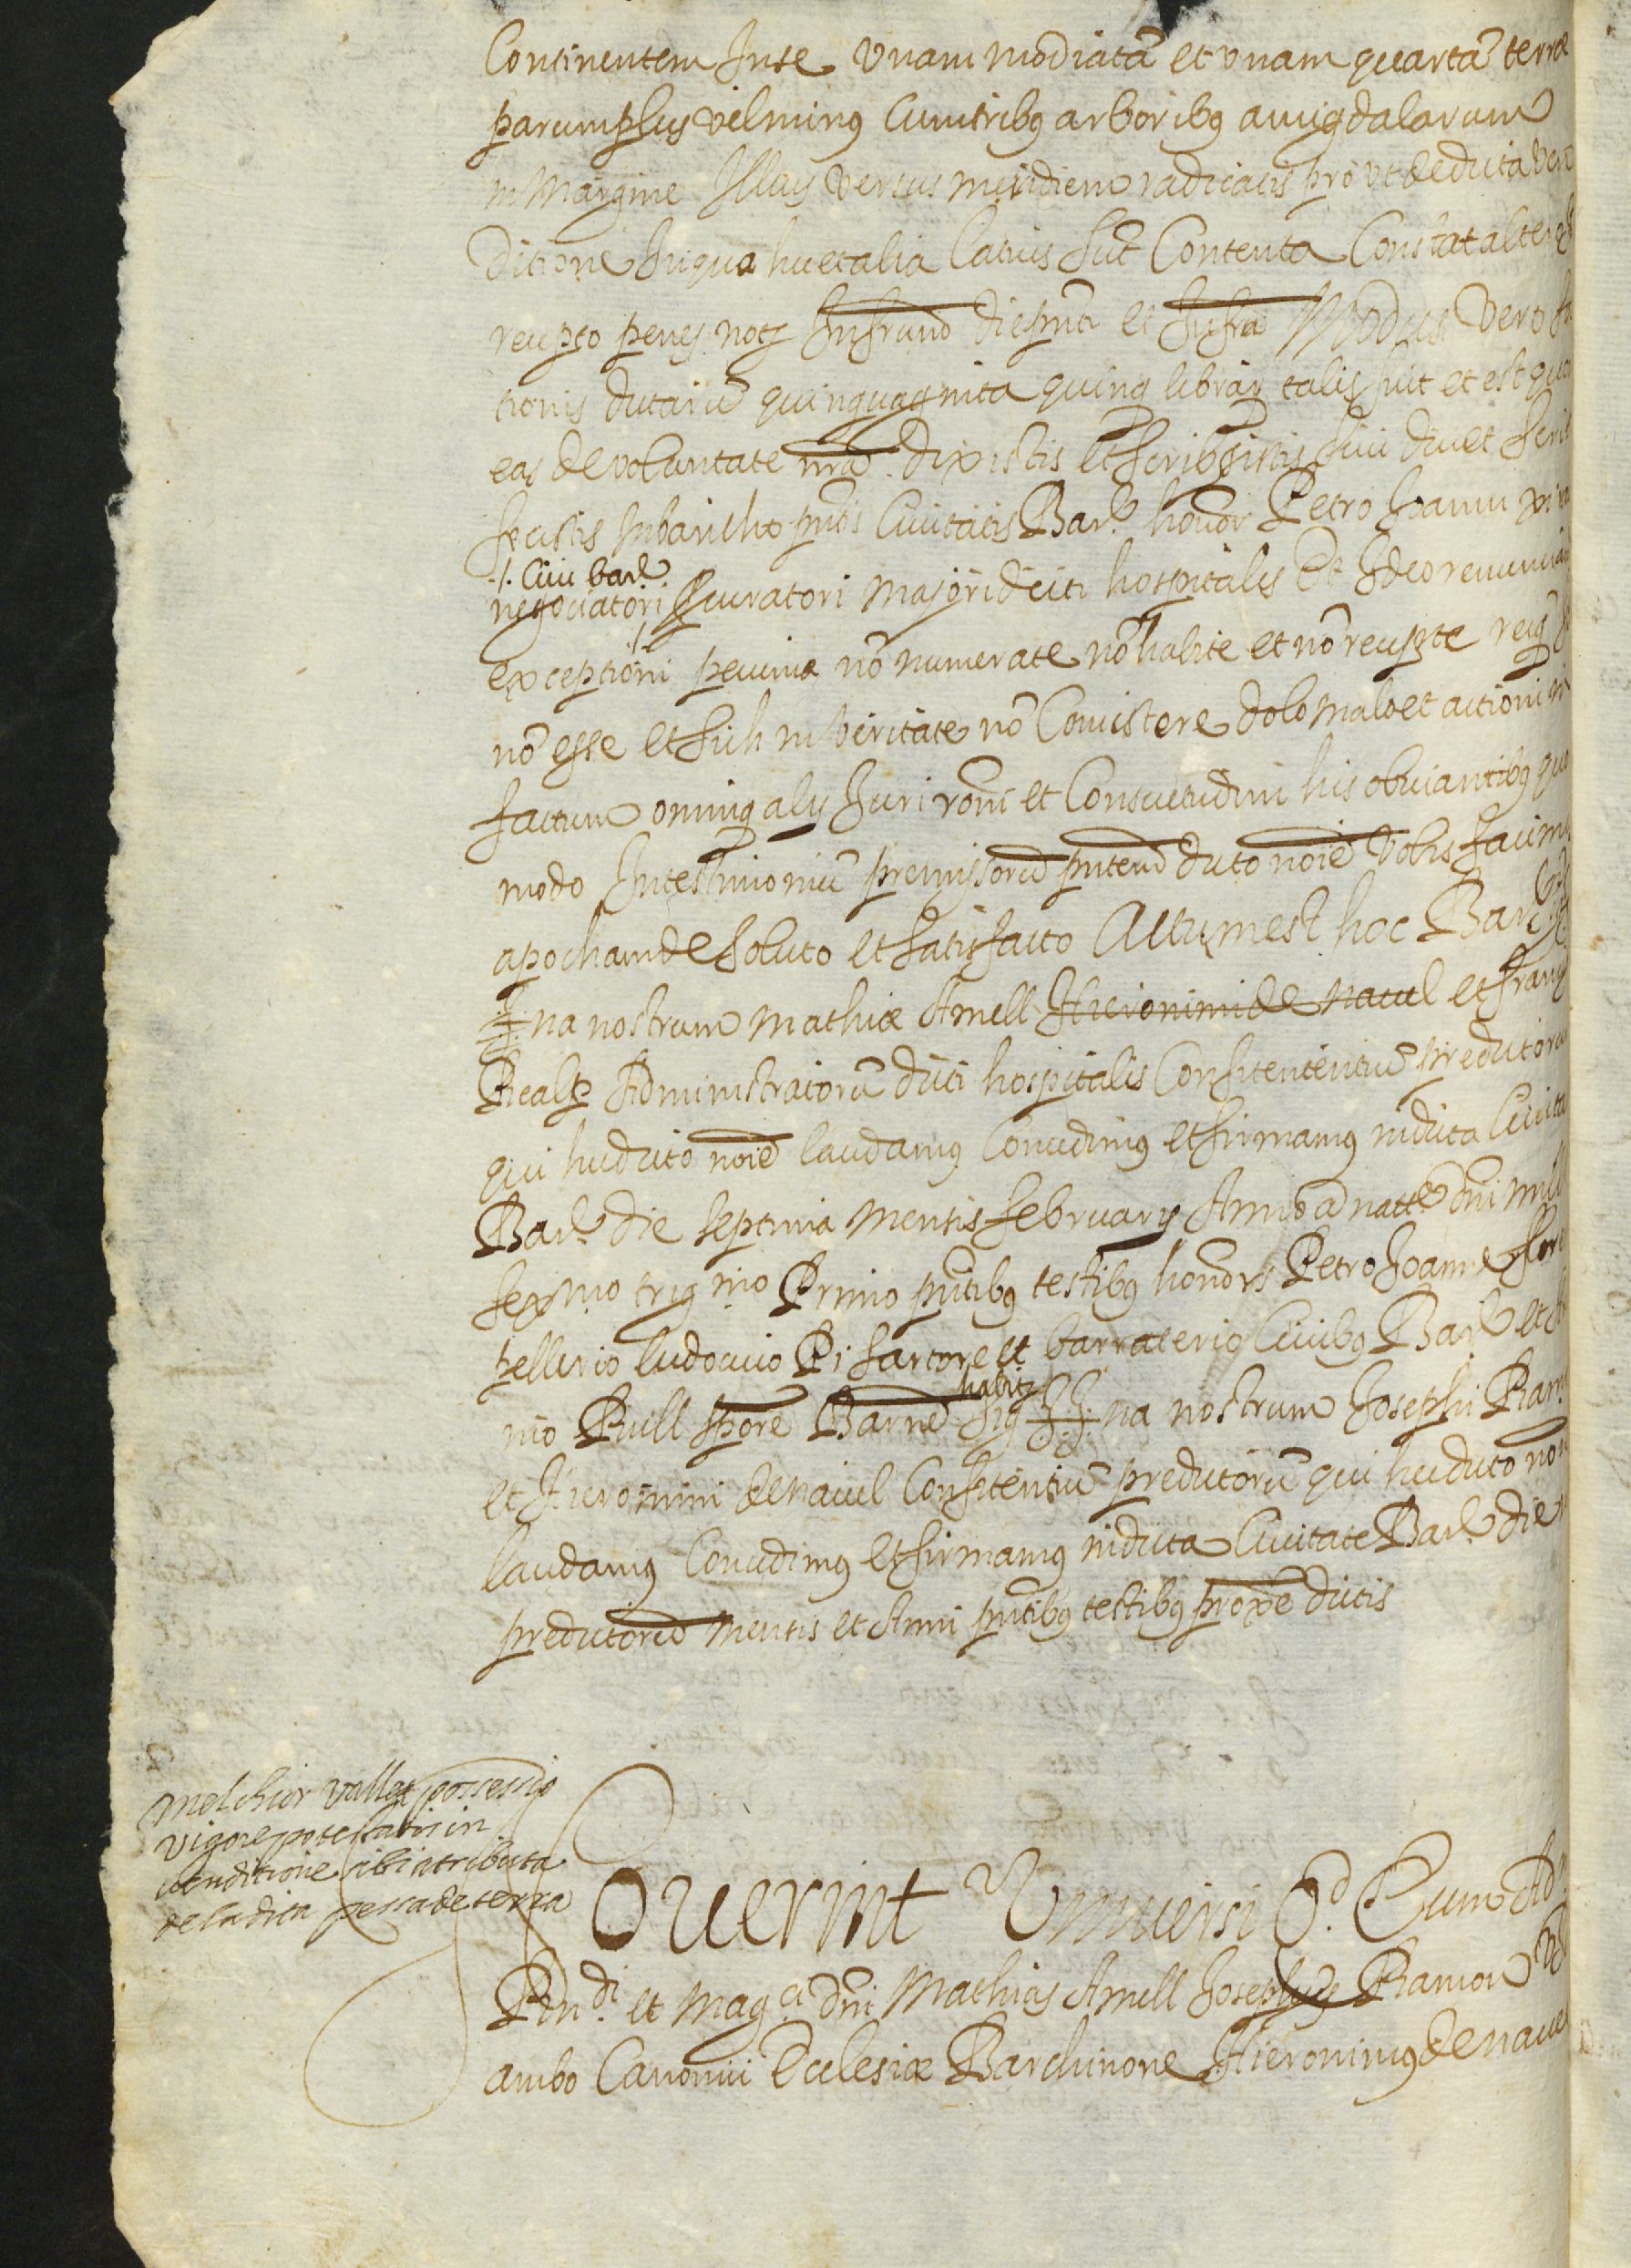 Continentem Inse vnam modiatã et vnam quartã terræ
parum plus vel minus Cum tribus arboribus amigdalarum
in Margine Illius versus meridiem radicatis pro vt de dicta ven
ditione In qua hæc et alia latius sũt Contenta Constat alter
recepto penes notm Infrum die pnti et Infra Modus vero
tionis dictarũ quinquaginta quinq librar talis fuit et est quo
eas de voluntate nrã dixistis et scribsistis sivi dici et scrib
fecistis In bancho pntis Civitatis Barñe honor Petro Joanni
./. Civi Barñe
negociatori ./. Procuratori Majori dicti hospitalis Et Ideo renuncian
exceptioni pecuniæ nõ numerate nõ habite et nõ recepte reiq
nõ esse et sich in veritate nõ Consistere dolo malo et actioni in
factum omniq alij Juri roni et Consuetudini his obviantibus quo
modo In testimoniũ premissorũ pntem dicto noie vobis facimus
apocham de soluto et satisfacto Actum est hoc Barñe
na nostrum Mathiæ Amell Hieronimi de Navel et Franci
Realp Administratorũ dicti hospitalis Confitentiũ predictoru
qui hæc dicto noie laudamus Concedimus et firmamus in dicta Civita
Barñe die septima Mensis februarij Anno a natte dni mill
sexmo trigmo Primo pntibus testibus honors Petro Joanne
pellicio ludovico Pi sartore et barraterio Civibus Barñe et
nio Rull spore Barñe habit Sig na nostrum Josephi Ramon
et Hieronimi de Navel Confitentiũ predictorũ qui hæc dicto noie
laudamus Concedimus et firmamus in dicta Civitate Barñe die
predictorũ Mensis et Anni pntibus testibus proxe dictis
Melchior Vallet possessio
vigore potestatis in
venditione sibi atributa
de la dita pessa de terra
Noverint Vniversi Qd Cum Ad
Rdi et Magci dni Mathias Amell Josephus Ramon
ambo Canonici Ecclesiæ Barchinone Hieronimus de Navel